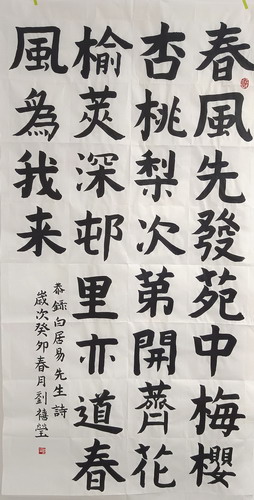 春風先發苑中梅櫻
杏桃梨次第開薺花
榆莢深邨里亦道春
風為我来
恭録白居易先生詩
歲次癸卯春月劉禧瑩